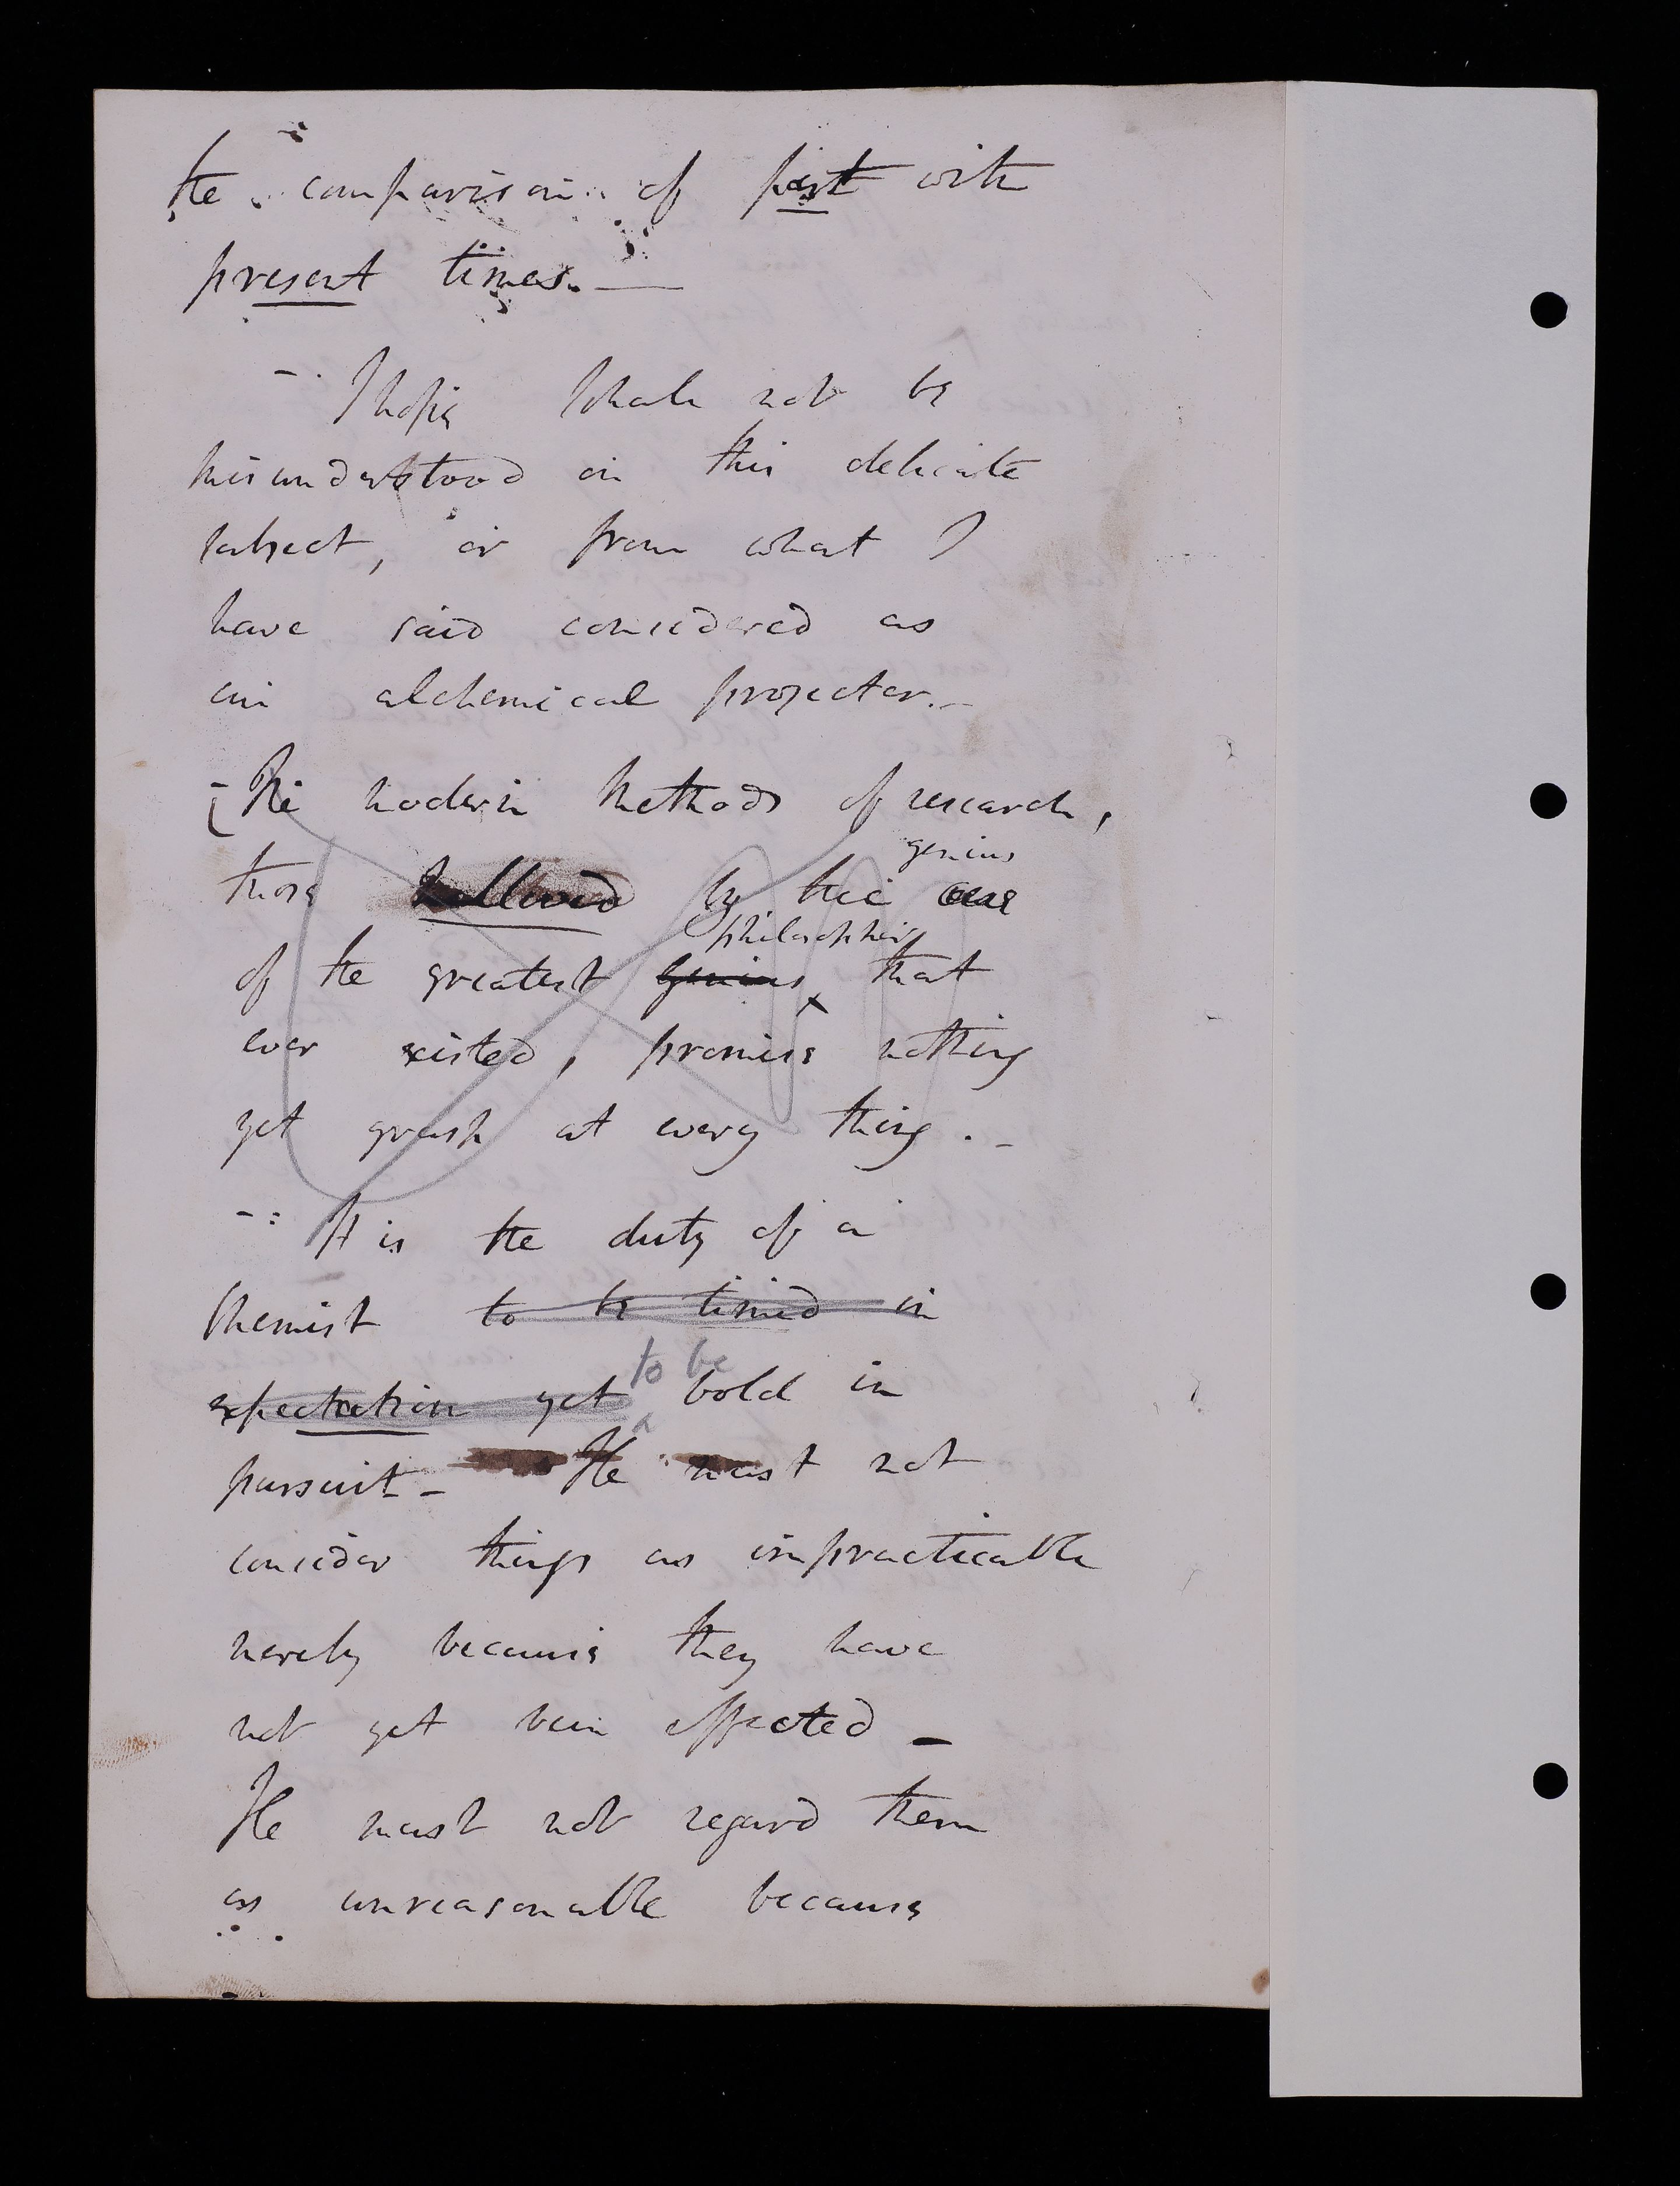 the comparison of past with
present times. —
– I hope I shall not be
misunderstood on this delicate
subject, or from what I
have said considered as
an alchemical projector. –
– The modern methods of research,
those hallowed by the
genius
of the greatest genius that
philosophers
ever existed, promise nothing
yet grasp at every thing. –
– : It is the duty of a
Chemist to be timid in
expectation yet bold in
to be
pursuit – He must not
consider things as impracticable
merely because they have
not yet been effected –
He must not regard them
as unreasonable because